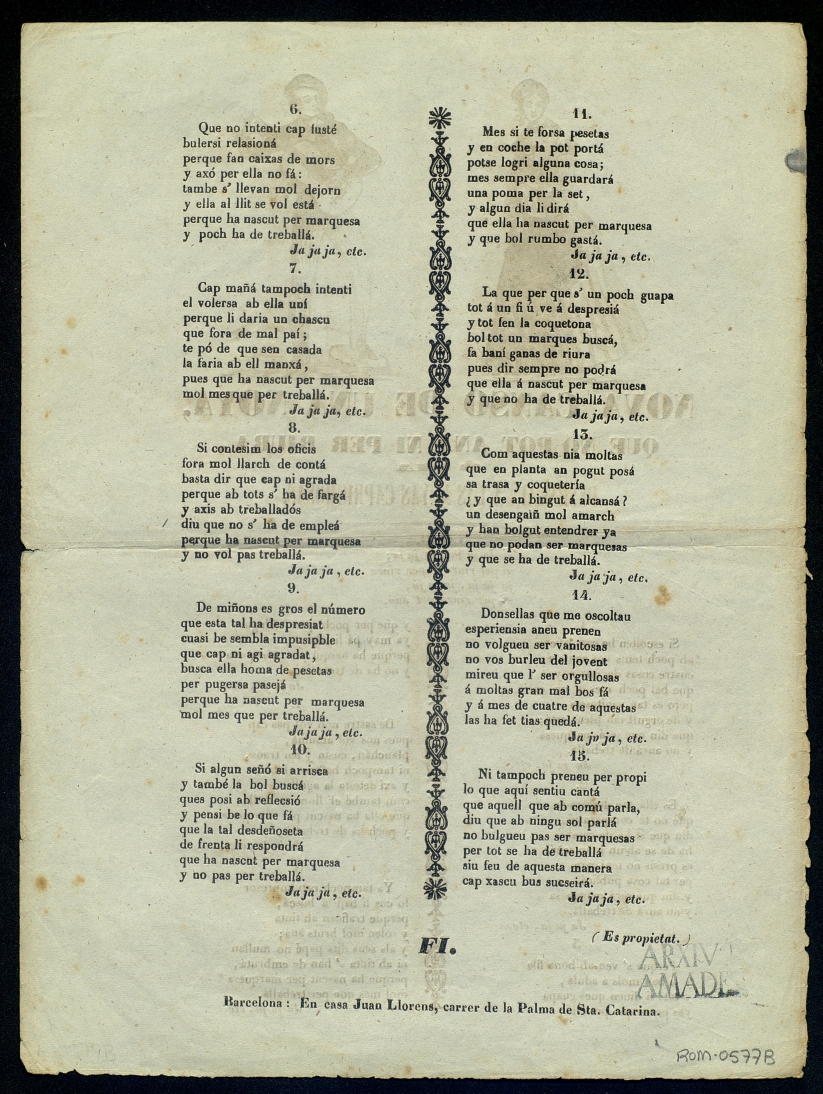 6.
Que no intenti cap fusté
bulersi relasioná
perque fan caixas de mors
y axó per ella no fá:
tambe s' llevan mol dejorn
y ella al llit se vol está
perque ha nascut per marquesa
y poch ha de treballá.
Ja ja ja, etc.
7.
Cap mañá tampoch intenti
el volersa ab ella uní
perque li daria un chascu
que fora de mal paí;
te pó de que sen casada
la faria ab ell manxá,
pues que ha nascut per marquesa
mol mes que per treballá.
Ja ja ja, etc.
8.
Si contesim los oficis
fora mol llarch de contá
basta dir que cap ni agrada
perque ab tots s' ha de fargá
y axis ab treballadós
diu que no s' ha de empleá
perque ha nascut per marquesa
y no vol pas treballá.
Ja ja ja, etc.
9.
De miñons es gros el número
que esta tal ha despresiat
cuasi be sembla impusipble
que cap ni agi agradat,
busca ella homa de pesetas
per pugersa pasejá
perque ha nascut per marquesa
mol mes que per treballá.
Ja ja ja, etc.
10.
Si algun señó si arrisca
y també la bol buscá
ques posi ab reflecsió
y pensi be lo que fá
que la tal desdeñoseta
de frenta li respondrá
que ha nascut per marquesa
y no pas per treballá.
Ja ja ja, etc.
11.
Mes si te forsa pesetas
y en coche la pot portá
potse logri alguna cosa;
mes sempre ella guardará
una poma per la set,
y algun dia li dirá
que ella ha nascut per marquesa
y que bol rumbo gastá.
Ja ja ja, etc.
12.
La que per que s' un poch guapa
tot á un fi ú ve á despresiá
y tot fen la coquetona
bol tot un marques buscá,
fa baní ganas de riura
pues dir sempre no podrá
que ella á nascut per marquesa
y que no ha de treballá.
Ja ja ja, etc.
13.
Com aquestas nia moltas
que en planta an pogut posá
sa trasa y coquetería
¿y que an bingut á alcansá?
un desengaiñ mol amarch
y han bolgut entendrer ya
que no podan ser marquesas
y que se ha de treballá.
Ja ja ja, etc.
14.
Donsellas que me oscoltau
esperiensia aneu prenen
no volgueu ser vanitosas
no vos burleu del jovent
mireu que l' ser orgullosas
á moltas gran mal bos fá
y á mes de cuatre de aquestas
las ha fet tias quedá.
Ja ja ja, etc.
15.
Ni tampoch preneu per propi
lo que aquí sentiu cantá
que aquell que ab comú parla,
diu que ab ningu sol parlá
no bulgueu pas ser marquesas
per tot se ha de treballá
siu feu de aquesta manera
cap xascu bus sucseirá.
Ja ja ja, etc.
(Es propietat.)
FI.
ARXIV
AMADE
Barcelona: En casa Juan Llorens, carrer de la Palma de Sta. Catarina.
ROM-0577B